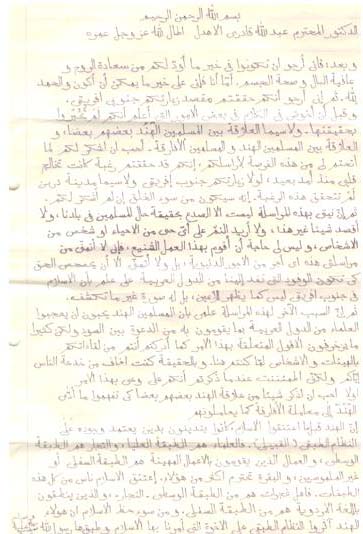 بسم الله الرحمن الرحيم
الدكتور المحترم عبد الله قادري الأهدل أطال الله عز وجل عمره
و بعد، فإني أرجو أن تكونوا في خير ما أوده لكم من سعادة الروح و
عافية البال و صحة الجسم. أما أنا فإني على خير ما يمكن أن أكون و الحمد
لله. ثم إني أرجو أنكم حققتم مقصد زيارتكم جنوبي أفريقي.
و قبل أن أخوض في الكلام في بعض الأمور التي أعلم أنكم لم تخبروا
بحقيقتها. و لا سيما العلاقة بين المسلمين الهند بعضهم بعضا، و
العلاقة بين المسلمين الهند و المسلمين الأفارقة. أحب أن أشكر لكم لما
أتحتم لي من هذه الفرصة لأراسلكم. إنكم قد حققتم رغبة كانت تخالج
قلبي منذ أمد بعيد. لولا زيارتكم جنوب إفريقي ولا سيما مدينة دربن
لم تتحقق هذه الرغبة. إنه سيكون من سوء الخلق إن لم أشكر لكم.
ثم إن نيتي بهذه المراسلة ليست إلا الصدع بحقيقة حال المسلمين في بلدنا، ولا
أقصد شيئا غير هذا. و لا أريد النقر على أي حي من الأحياء أو شخص من
الأشخاص، و ليس لي حاجة أن أقوم بهذا العمل الشنيع، فإني لا أنتفع من
مراسلتي هذه أي أمر من الأمور الدنيوية، بل و لا أنتفع إلا أن يمحص الحق
كي تكون الوفود التي تفد إلينا من الدول العربية على علم بأن الإسلام
في جنوب أفريقي ليس كما يظهر للعين، بل له صورة غير ما تكشفه.
ثم إن السبب الآخر لهذه المراسلة علمي بأن المسلمين الهند يحبون أن يعجبوا
العلماء من الدول العربية بما يقومون به من الدعوة بين السود و لكن كثيرا
ما يزخرفون الأقوال المتعلقة بهذا الأمر كما أدركتم أنتم من لقاءاتكم
بالهيئات و الأشخاص لقاءكم هنا. و بالحقيقة كنت أخاف من خدعة الناس
إياكم و لكني اطمئننت عندما ذكرتم أنكم على وعي بهذا الأمر
أولا أحب أن أذكر شيئا من علاقة الهند بعضهم بعضا كي تفهموا ما أدى
الهند إلى معاملة الأفارقة كما يعاملونهم
إن الهند قبلما اعتنقوا الإسلام كانوا يتدينون بدين يعتمد وجوده على
النظام الطبقي (القبيلي). فالعلماء هم الطبقة العليا، و التجار هم الطبقة
الوسطى، و العمال الذين يقومون بالأعمال المهينة هم الطبقة السفلى أو
غير الملموسين، و البقرة تحترم أكثر من هؤلاء. إعتنق الإسلام ناس من كل هذه
الطبقات. فأهل غجرات هم من الطبقة الوسطى، التجار، و الذين ينطقون
باللغة الأردوية هم من الطبقة السفلى. و من سوء حظ الإسلام أن هؤلاء
الهند آثروا النظام الطبقي على الأخوة التي أمرنا بها الإسلام و طبقها رسول الله